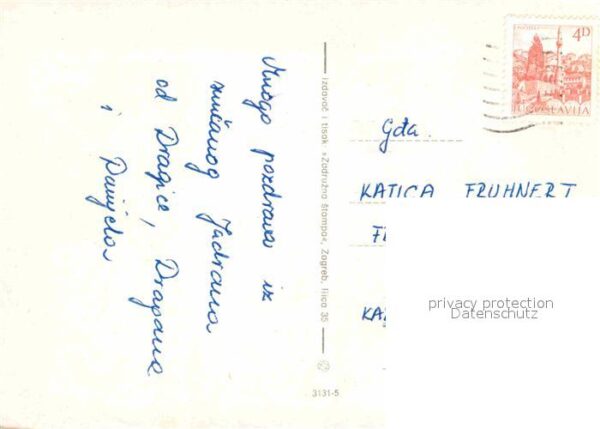 Mnogo pozdrava iz
sunčanog Jadrana
od Dragice, Dragana
i Danijela
Izdavač i tisak »Zadružna štampa«, Zagreb, Ilica 35
3131-5
4D
JUGOSLAVIJA
Gđa
KATICA FRUHNERT
privacy protection
Datenschutz